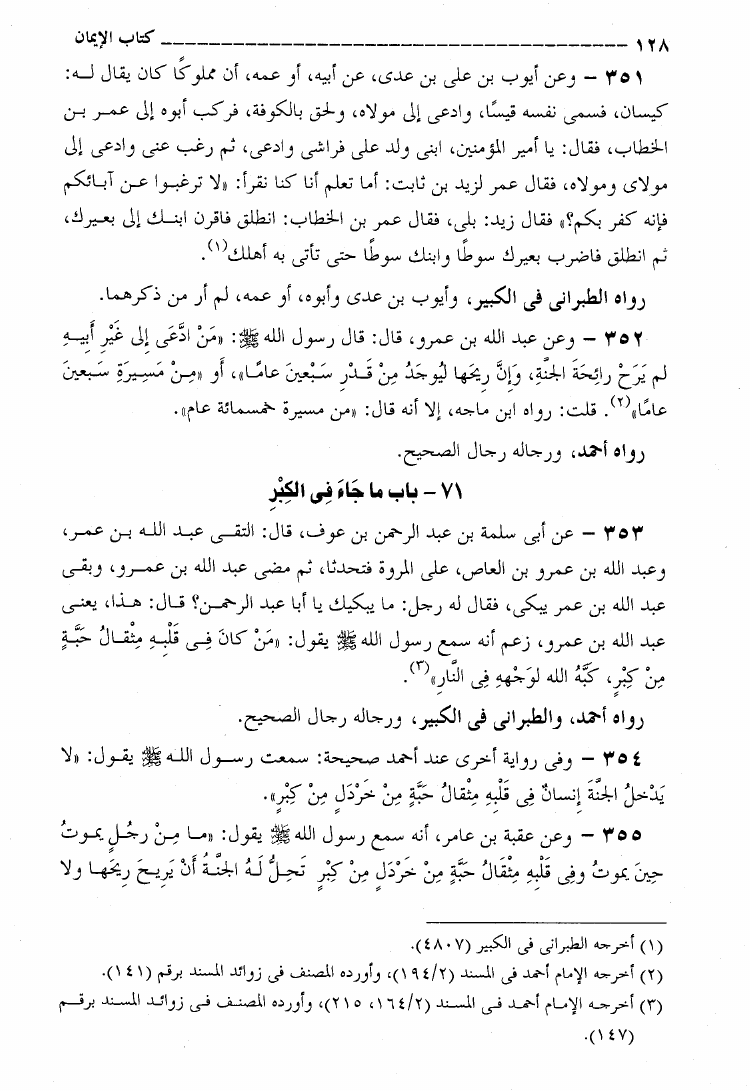 ١٢٨ ـــــــــــــــــــــــــــــــــــــــــــــــــــــــــــــــ كتاب الإيمان
٣٥١ – وعن أيوب بن على بن عدى، عن أبيه، أو عمه، أن مملوكًا كان يقال لـه:
كيسان، فسمى نفسه قيسًا، وادعى إلى مولاه، ولحق بالكوفة، فركب أبوه إلى عمـر بـن
الخطاب، فقال: يا أمير المؤمنين، ابنى ولد على فراشى وادعى، ثـم رغب عنى وادعى إلى
مولاى ومولاه، فقال عمر لزيد بن ثابت: أما تعلم أنا كنا نقرأ: «لا ترغبـوا عـن آبـائكم
فإنه كفر بكم؟» فقال زيد: بلى، فقال عمر بن الخطاب: انطلق فاقرن ابنـك إلى بعـيرك،
ثم انطلق فاضرب بعيرك سوطًا وابنك سوطًا حتى تأتى به أهلك(١).
رواه الطبرانى فى الكبير، وأيوب بن عدى وأبوه، أو عمه، لم أر من ذكرهما.
٣٥٢ – وعن عبد الله بن عمرو، قال: قال رسول الله ﷺ: «مَنْ ادَّعَى إِلى غَيْرِ أَبِيـهِ
لم يَرَحْ رائِحَةَ الجَنَّةِ، وَإِنَّ رِيحَها لَيُوجَدُ مِنْ قَـدْرِ سَبْعينَ عامًـا»، أو «مِـنْ مَسِيرَةِ سَبعينَ
عامًا»(٢). قلت: رواه ابن ماجه، إلا أنه قال: «من مسيرة خمسمائة عام».
رواه أحمد، ورجاله رجال الصحيح.
٧١ – باب ما جَاءَ فِى الكِبْرِ
٣٥٣ – عن أبى سلمة بن عبد الرحمن بن عوف، قال: التقـى عبـد اللـه بـن عمـر،
وعبد الله بن عمرو بن العاص، على المروة فتحدثا، ثم مضى عبد الله بن عمـرو، وبقـى
عبد الله بن عمر يبكى، فقال له رجل: ما يبكيك يا أبا عبد الرحمـن؟ قـال: هـذا، يعنـى
عبد الله بن عمرو، زعم أنه سمع رسول الله ﷺ يقول: «مَنْ كانَ فِـى قَلْبِـهِ مِثْقـالُ حَبَّـةٍ
مِنْ كِبْرٍ، كَبَّهُ الله لوَجْههِ فِى النَّارِ»(٣).
رواه أحمد، والطبرانى فى الكبير، ورجاله رجال الصحيح.
٣٥٤ – وفى رواية أخرى عند أحمد صحيحة: سمعت رسـول اللـه ﷺ يقـول: «لا
يَدْخلُ الجَنَّةَ إِنسانٌ فِى قَلْبِهِ مِثْقالُ حَبَّةٍ مِنْ خَرْدَلٍ مِنْ كِبْرٍ».
٣٥٥ – وعن عقبة بن عامر، أنه سمع رسول الله ﷺ يقول: «مـا مِـنْ رجُـلٍ يمـوتُ
حِينَ يموتُ وفِى قَلْبِهِ مِثْقالُ حَبَّةٍ مِنْ خَرْدَلٍ مِنْ كِبْرٍ تَحِـلُّ لَـهُ الجَنَّـةُ أَنْ يَرِيـحَ رِيحَهـا ولا
(١) أخرجه الطبرانى فى الكبير (٤٨٠٧).
(٢) أخرجه الإمام أحمد فى المسند (١٩٤/٢)، وأورده المصنف فى زوائد المسند برقم (١٤١).
(٣) أخرجـه الإمـام أحمـد فـى المسـند (١٦٤/٢، ٢١٥)، وأورده المصنـف فـى زوائـد المسـند برقـم
(١٤٧).